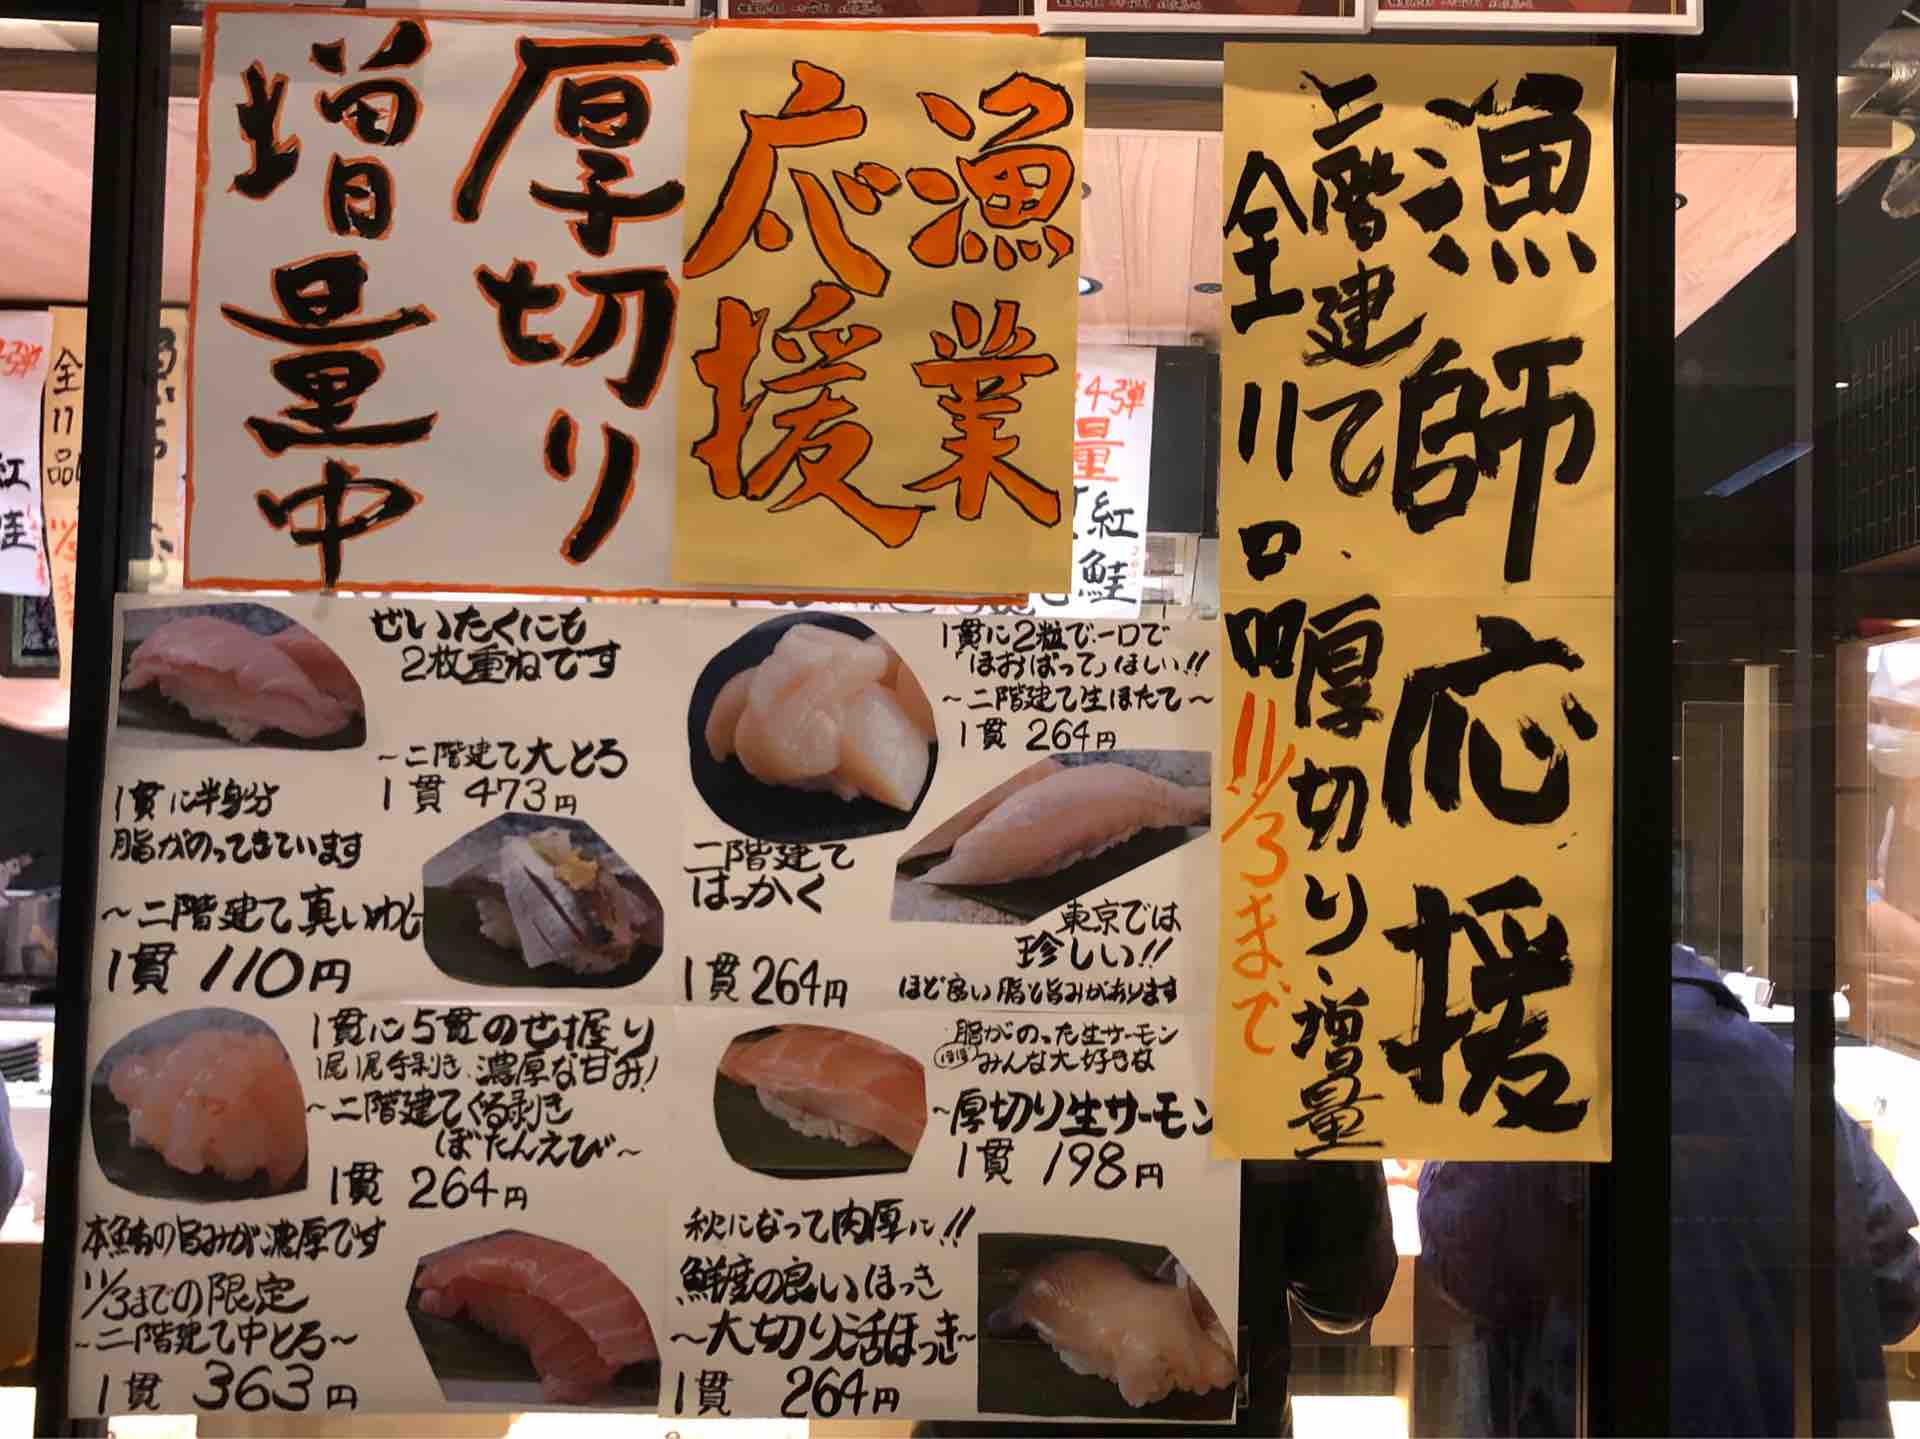 漁業
応援
厚切り
増量中
漁師応援
二階建て、厚切り、増量
全11品 11/3まで
ぜいたくにも
2枚重ねです
〜二階建て大とろ
1貫 473円
1貫に2粒で一口で
「ほおばって」ほしい!!
〜二階建て生ほたて〜
1貫 264円
1貫に半身分
脂がのってきています
〜二階建て真いわし
1貫 110円
二階建て
はっかく
1貫 264円
東京では
珍しい!!
ほど良い脂と旨みがあります
1貫に5貫のせ握り
1尾1尾手剥き、濃厚な甘み!
〜二階建てぐる剥き
ぼたんえび〜
1貫 264円
脂がのった生サーモン
(ほぼ)みんな大好きな
〜厚切り生サーモン
1貫 198円
本鮪の旨みが濃厚です
11/3までの限定
〜二階建て中とろ〜
1貫 363円
秋になって肉厚に!!
鮮度の良いほっき
〜大切り活ほっき〜
1貫 264円
全11品
紅鮭
4弾
量
紅
鮭